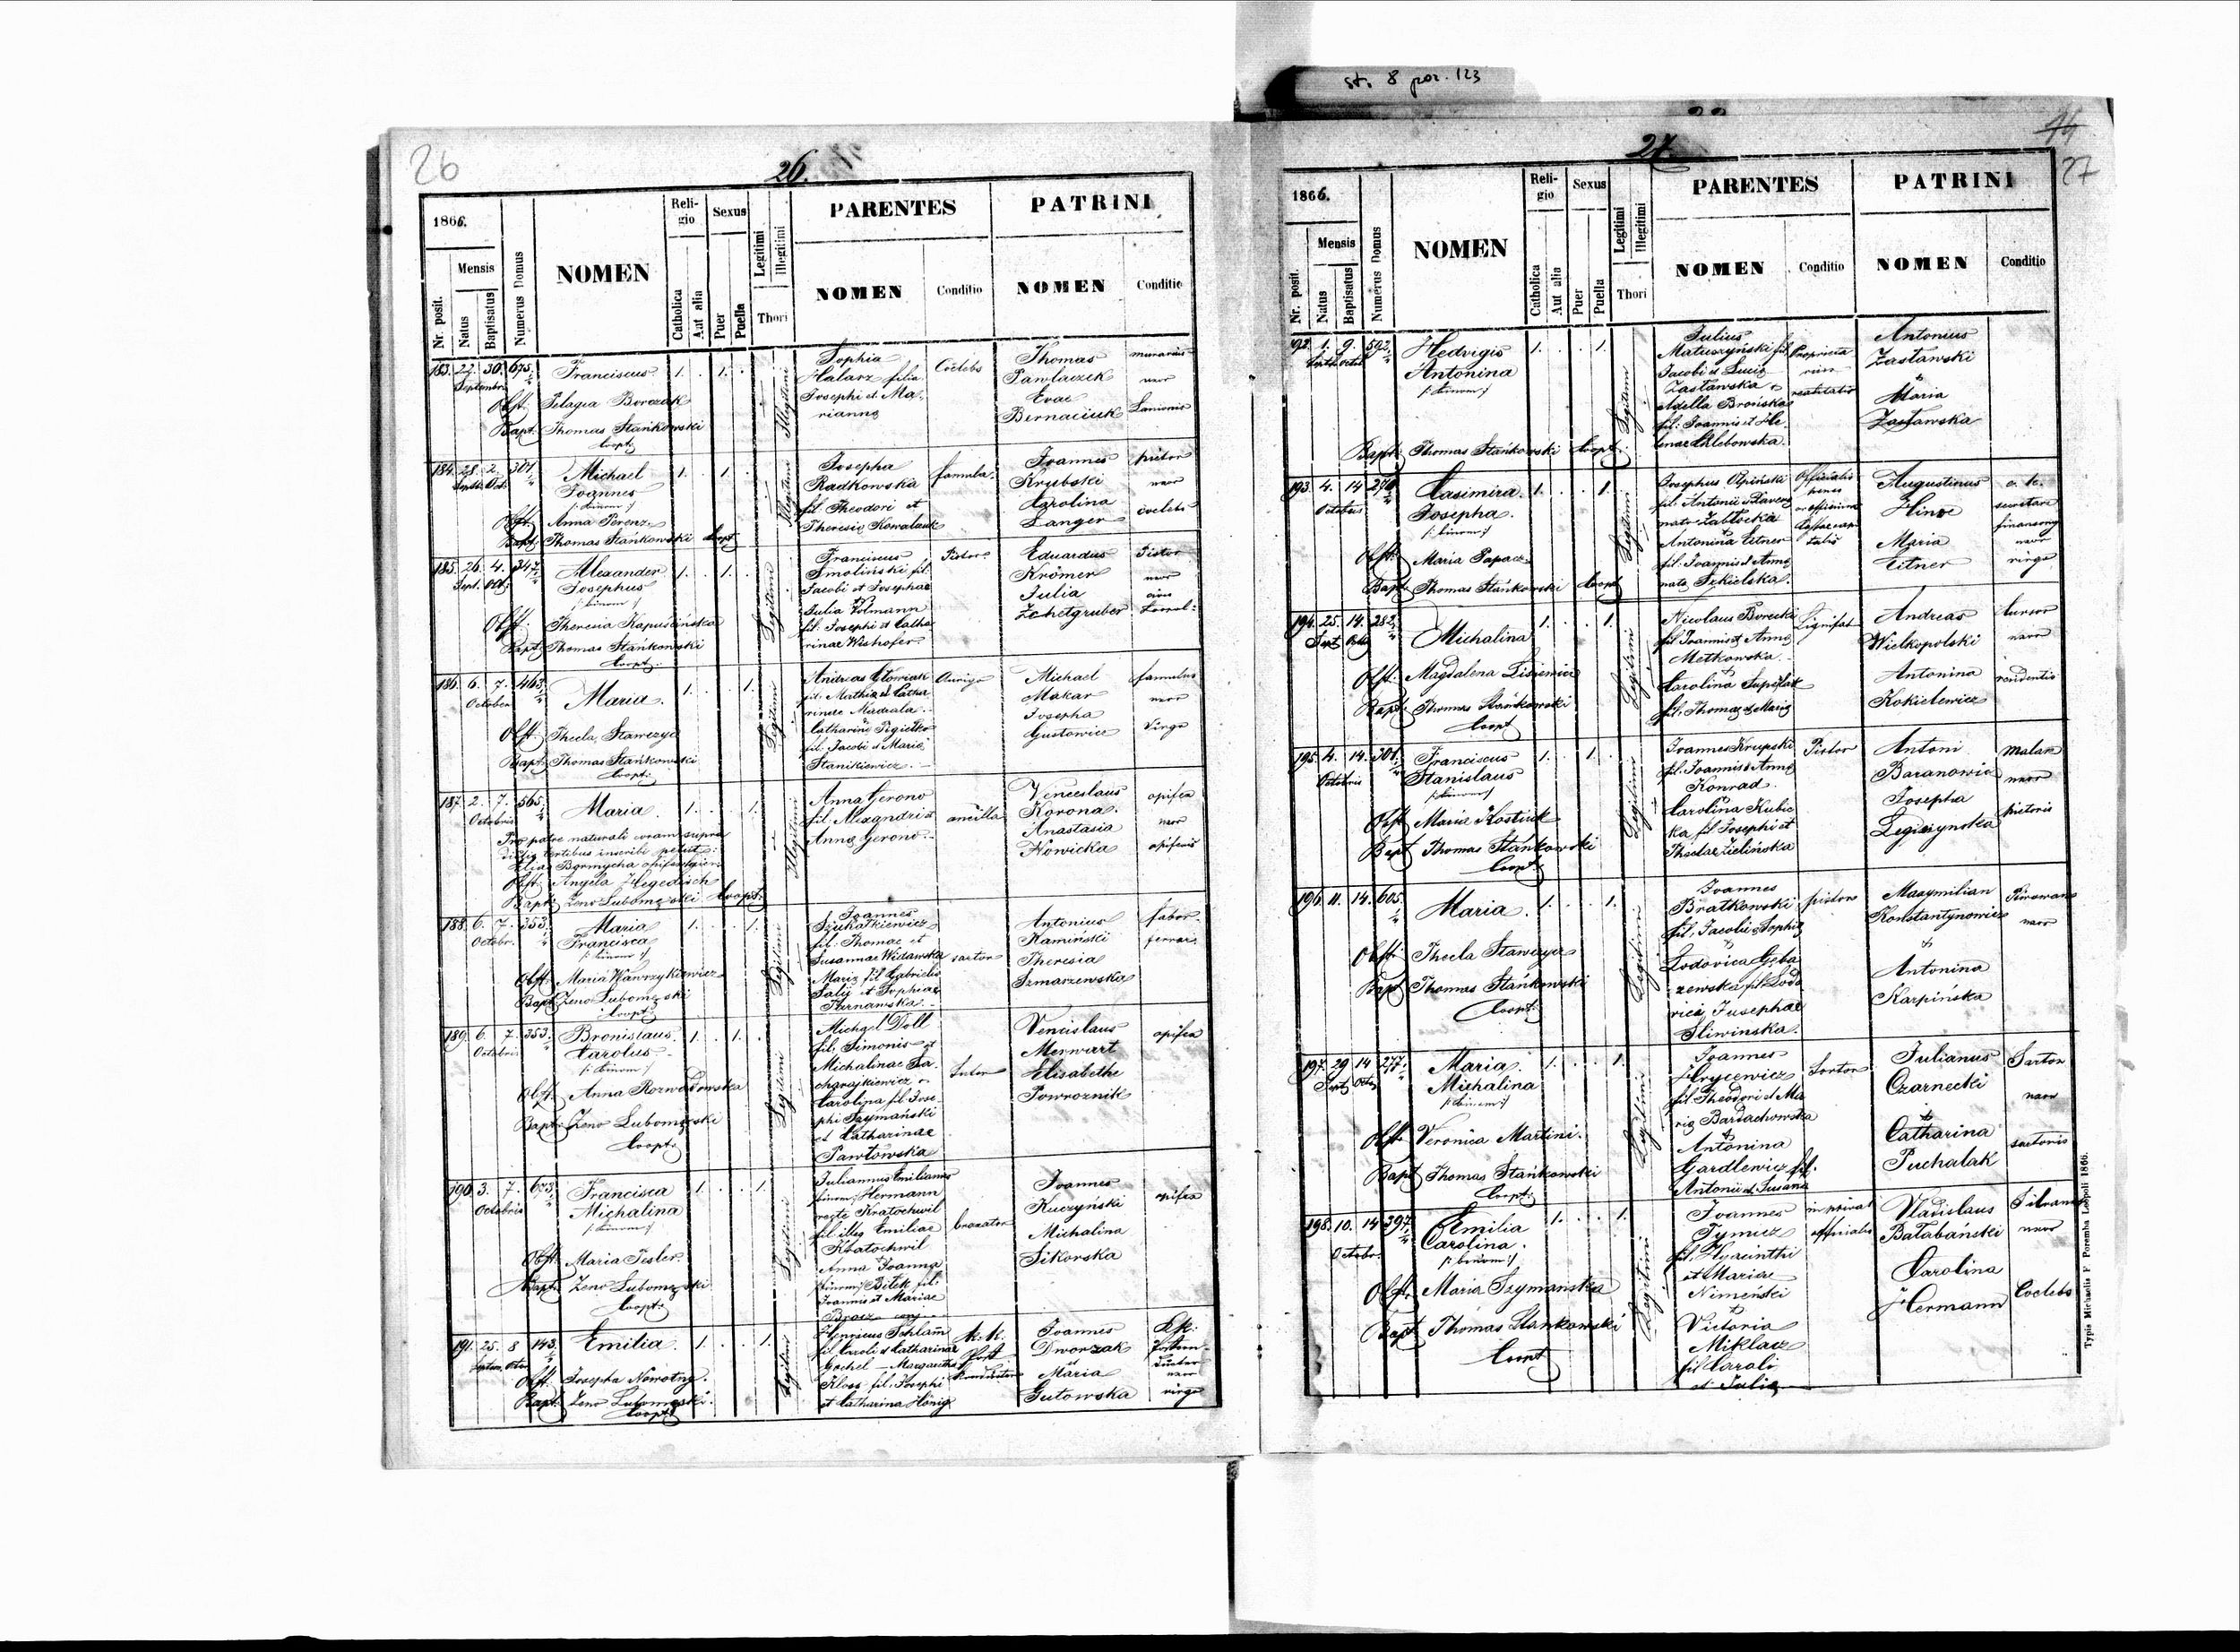 st. 8 poz. 123
26
26.
1866.
Nr. posit.
Mensis
Natus
Baptisatus
Numerus Domus
NOMEN
Religio
Catholica
Aut alia
Sexus
Puer
Puella
Legitimi
Illegitimi
Thori
PARENTES
NOMEN
Conditio
PATRINI
NOMEN
Conditio
183. 27. 30. 675.
Septembr.
Franciscus 1. . 1. .
Obst: Pelagia Borczak
Bapt: Thomas Stańkowski
Coopt:
Illegitimi
Sophia
Halarz filia
Josephi et Ma-
rianna
Coelebs
Thomas
Pawlaczek
Evae
Bernaciuk
murarius
uxor
Lanionis
184. 28. 2. 301.
Sept. Oct.
Michael
Joannes
/: binom :/
1. . 1.
Obst: Anna Perenz
Bapt: Thomas Stańkowski Coopt:
Illegitimi
Josepha
Radkowska
fil. Theodori et
Theresie Kowalauk
famula
Joannes
Krubski
Carolina
Langer
pistor
uxor
coelebs
185. 26. 4. 347.
Sept. Oct:
Alexander
Josephus
/: binom :/
1. . 1.
Obst: Theresia Kapuścinska
Bapt: Thomas Stańkowski
Coopt:
Legitimi
Franciscus
Smoliński fil.
Jacobi et Josephae
Julia Volmann
fil. Josephi et Catha
rinae Wishofer
Pistor
Eduardus
Krömer
Julia
Zchetgruber
Pistor
uxor
186. 6. 7. 463.
October
Maria. 1. . . 1.
Obst: Thecla Stawczyc
Bapt: Thomas Stańkowski
Coopt:
Legitimi
fil. Mathia et Catha
rinae
Catharine
fil. Jacobi et Marie
Stanikiewicz.
Auriga
Michael
Makar
Josepha
Gustowicz
famulus
uxor
Virgo
187. 2. 7. 565.
Octobris
Maria. 1. . . 1.
Pro patre naturali coram supra
dictis testibus inscribi petiit:
Obst: Angela Hegedisch
Bapt: Zeno Lubomęski Coopt:
Illegitimi
Anna Gerono
fil. Alexandri et
Anna Gerono.
ancilla
Venceslaus
Korona.
Anastasia
Nowicka
opifex
uxor
opificis
188. 6. 7. 353.
Octobr.
Maria
Francisca
/: binom :/
1. . . 1.
Obst: Maria Wawrzykiewicz
Bapt: Zeno Lubomęski
Coopt:
Legitimi
Joannes
Szukatkiewicz
fil. Thomae et
Susannae Widawska
Maria fil. Gabrielis
Salij et Sophiae
Tarnawska.
sartor
Antonius
Kamiński
Theresia
Szmarzewska
faber
ferrar.
189. 6. 7. 353.
Octobris
Bronislaus
Carolus
/: binom :/
1. . 1.
Obst: Anna Rozwadowska
Bapt: Zeno Lubomęski
Coopt:
Legitimi
Michael Doll
fil. Simonis et
Michalinae Za-
charajkiewicz
Carolina fil. Jose-
phi Szymański
et Catharinae
Pawłowska
Sutor
Vencislaus
Merwart
Elisabethe
Powroznik
opifex
190. 3. 7. 673.
Octobris
Francisca
Michalina
/: binom :/
1. . . 1.
Obst: Maria Tesler
Bapt: Zeno Lubomęski
Coopt:
Legitimi
Juliannus Emilianus
/binom/ Hermann
recte Kratochwil
fil. illeg Emiliae
Kratochwil
Anna Joanna
/binom/ Bilek fil.
Joannis et Mariae
Joannes
Kuczyński
Michalina
Sikorska
opifex
191. 25. 8 143.
Septem. Octbr
Emilia. 1. . . 1.
Obst: Josepha Nowotny.
Bapt: Zeno Lubomęski.
Coopt:
Legitimi
Henricus Schlam̄
fil. Caroli et Catharinae
Gochel — Margaritha
Kloss fil. Josephi
et Catharina Hönig
k. k.
Post
Joannes
Dworzak
et
Maria
Gutowska
k.k.
uxor
virgo
27.
44
27
1866.
Nr. posit.
Mensis
Natus
Baptisatus
Numerus Domus
NOMEN
Religio
Catholica
Aut alia
Sexus
Puer
Puella
Legitimi
Illegitimi
Thori
PARENTES
NOMEN
Conditio
PATRINI
NOMEN
Conditio
192. 1. 9. 592.
Hedvigis
Antonina
/: binom :/
1. . . 1.
Bapt: Thomas Stańkowski Coopt:
Legitimi
Julius
Matuszyński fil.
Jacobi et Lucia
Zasławska &
Adella Brońska
fil. Joannis et He-
lenae Chlebowska.
Proprieta
rius
realitatis
Antonius
Zasławski
&
Maria
Zasławska
193. 4. 14 270
Octobris
Casimira.
Josepha.
/: binom :/
1. . . 1.
Obst: Maria Papacz
Bapt: Thomas Stańkowski Coopt
Legitimi
Josephus Olpiński
nata Zabłocka
Antonina Eitner
fil. Joannis et Anna
nata Szkielska.
Officialis
Augustinus
Hinze
Maria
Eitner
c. k.
secretar
uxor
virgo
194. 25. 14. 282.
Sept. Octb.
Michalina 1. . . 1.
Obst: Magdalena Lisiewicz
Bapt: Thomas Stańkowski
Coopt
Legitimi
Nicolaus Borecki
fil. Joannis et Anna
Metkowska.
&
Carolina
fil. Thoma et Maria
Lignifab
Andreas
Wielkopolski
Antonina
Kokielewicz
Cursor
uxor
195. 4. 14. 301.
Octobris
Franciscus
Stanislaus
/: binom :/
1. . 1.
Obst: Marie Kostiuk
Bapt: Thomas Stańkowski
Coopt:
Legitimi
Joannes Krupski
fil. Joannis et Anna
Konrad.
&
Carolina Kubic
ka fil Josephi et
Theclae Zielińska
Pistor
Antoni
Baranowicz
Josepha
Legieżynska
Malarz
uxor
pictoris
196. 11. 14. 605.
Maria. 1. . . 1.
Obst: Thecla Stawczyc
Bapt: Thomas Stańkowski
Coopt:
Legitimi
Joannes
Bratkowski
fil. Jacobi et Sophia
&
Lodovica Gęba
rzewska fil. Lodo
vici, Jusephae
Sliwinska.
pistor
Maxymilian
Konstantynowicz
&
Antonina
Karpińska
uxor
197. 29. 14 277.
Sept Octb
Maria.
Michalina
/: binom :/
1. . . 1.
Obst: Veronica Martini.
Bapt: Thomas Stańkowski
Coopt:
Legitimi
Joannes
Hrycewicz
fil. Theodori et Ma
ria Bardachowska
&
Antonina
Gardlewicz fil.
Antonii et Susana
Sartor
Julianus
Czarnecki
&
Catharina
Puchalak
Sartor
uxor
sartoris
198. 10. 14 397.
Octobr.
Emilia
Carolina.
/: binom :/
1. . . 1.
Obst: Maria Szymanska
Bapt: Thomas Stańkowski
Coopt
Legitimi
Joannes
Tymicz
fil. Hyacinthi
et Mariae
Nimeński
&
Victoria
Miklacz
fil Caroli
et Julia
in privat
officialis
Vladislaus
Bałabański
Carolina
Hermann
uxor
Coelebs
Typis Michaelis F Poremba Leopoli 1866.